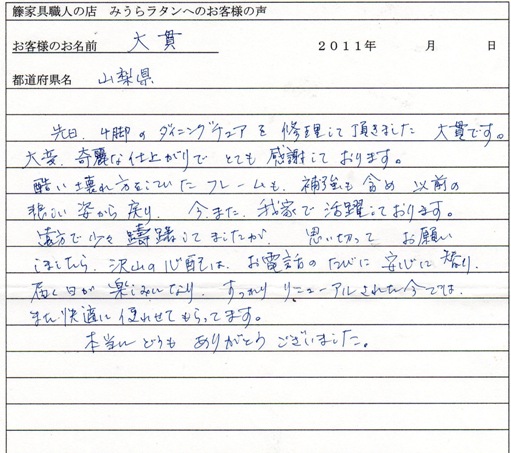 籐家具職人の店　みうらラタンへのお客様の声
お客様のお名前　大貫　２０１１年　月　日
都道府県名　山梨県
先日、4脚のダイニングチェアを修理して頂きました大貫です。
大変、奇麗な仕上がりでとても感謝しております。
酷い壊れ方をしていたフレームも、補強も含め以前の
美しい姿から戻り、今、また、我家で活躍しております。
遠方で少々躊躇してましたが、思い切ってお願い
しましたら、沢山の心配は、お電話のたびに安心に替り、
届く日が楽しみになり、すっかりリニューアルされた今では、
また快適に使わせてもらってます。
本当にどうもありがとうございました。